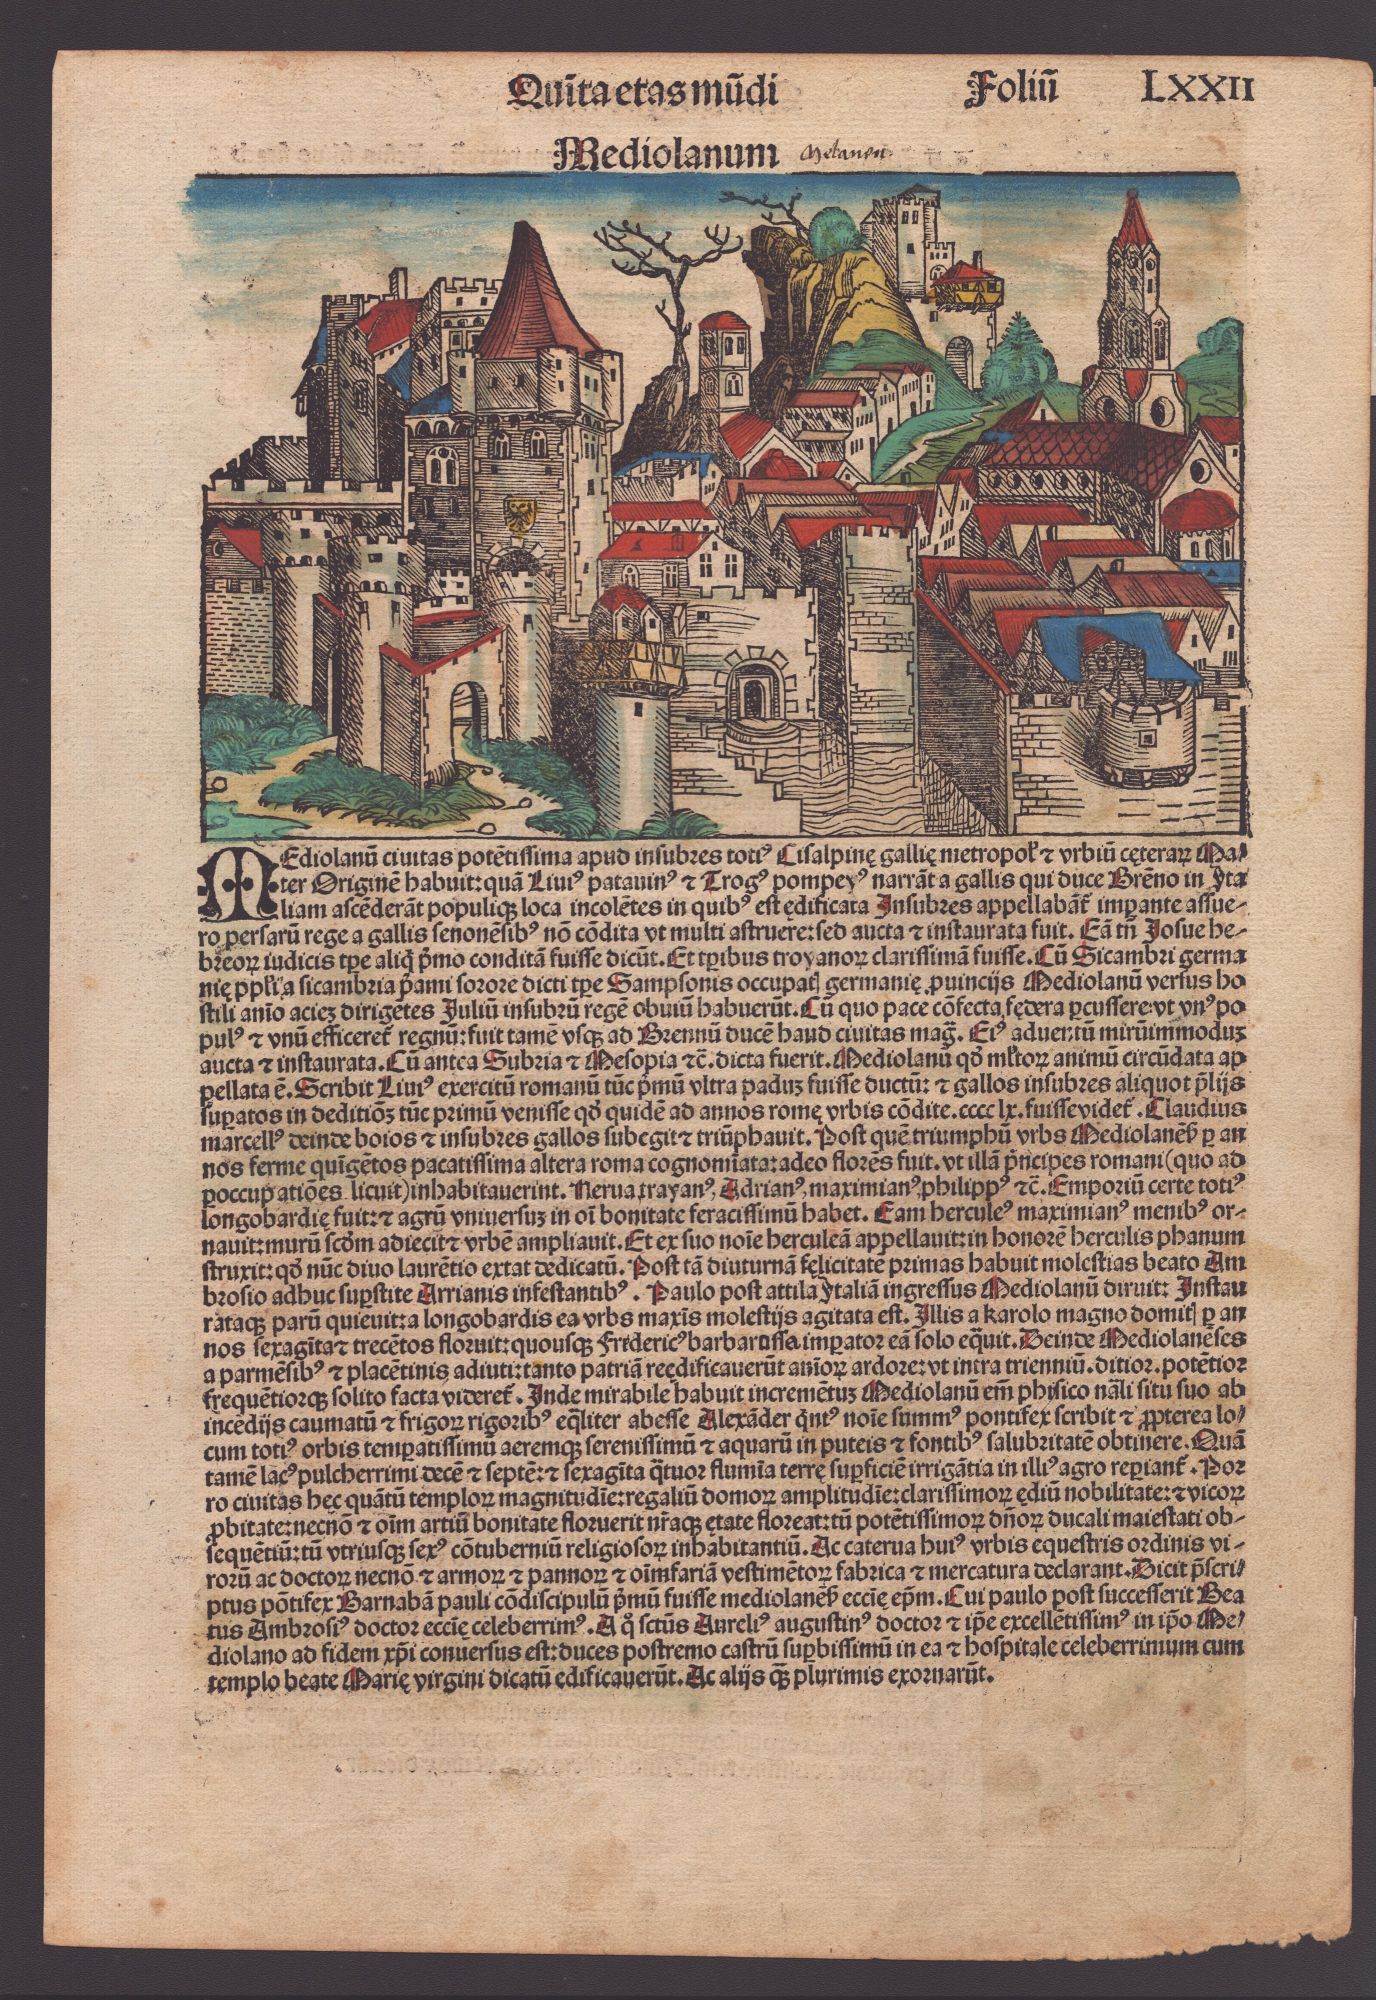 Quĩta etas mũdi Foliũ LXXII
Mediolanum
MEdiolanũ ciuitas potẽtissima apud insubres totiꝰ Cisalpinę gallię metropol' ⁊ vrbiũ cęteraꝝ Ma/
ter Originẽ habuit: quã Liuiꝰ patauinꝰ ⁊ Trogꝰ pompeyꝰ narrãt a gallis qui duce Brẽno in Yta
liam ascẽderãt populiqꝫ loca incolẽtes in quibꝰ est ędificata Insubres appellabãt᷑ imꝑante assue-
ro persarũ rege a gallis senonẽsibꝰ nõ cõdita vt multi astruere: sed aucta ⁊ instaurata fuit. Eã tñ Josue he-
breoꝝ iudicis tꝑe aliq̃ p̃mo conditã fuisse dicũt. Et tribus troyanoꝝ clarissimã fuisse. Cũ Sicambri germa
nię ppl'i a sicambria p̃ami sorore dicti tꝑe Sampsonis occupat᷑ germanię ꝓuincijs Mediolanũ versus ho
stili anĩo acieꝫ dirigẽtes Juliũ insubrũ regẽ obuiũ habuerũt. Cũ quo pace cõfecta fędera ꝑcussere: vt vnꝰ po
pulꝰ ⁊ vnũ efficeret᷑ regnũ: fuit tamẽ vsqꝫ ad Brennũ ducẽ haud ciuitas mag̃. Eiꝰ aduentũ mirũimmoduꝫ
aucta ⁊ instaurata. Cũ antea Subria ⁊ Mesopia ⁊c̃. dicta fuerit. Mediolanũ qđ ml'toꝝ animũ circũdata ap
pellata ẽ. Scribit Liuiꝰ exercitũ romanũ tũc p̃mũ vltra paduꝫ fuisse ductũ: ⁊ gallos insubres aliquot p̃lijs
suꝑatos in deditiõꝫ tũc primũ venisse qđ quidẽ ad annos romę vrbis cõdite. cccc lx. fuisse videt᷑. Claudius
marcellꝰ deinde boios ⁊ insubres gallos subegit ⁊ triũphauit. Post quẽ triumphũ vrbs Mediolanẽ ꝑ an
nos ferme quĩgẽtos pacatissima altera roma cognomĩata: adeo florẽs fuit. vt illã p̃ncipes romani (quo ad
ꝑ occupatiões licuit) inhabitauerint. Nerua trayanꝰ, Adrianꝰ, maximianꝰ, philippꝰ ⁊c̃. Emporiũ certe totiꝰ
longobardię fuit: ⁊ agrũ vniuersuꝫ in oĩ bonitate feracissimũ habet. Eam herculeꝰ maximianꝰ menibꝰ or-
nauit: murũ scđm adiecit ⁊ vrbẽ ampliauit. Et ex suo noĩe herculeã appellauit: in honorẽ herculis phanum
struxit: qđ nũc diuo laurẽtio extat dedicatũ. Post tã diuturnã fęlicitatẽ primas habuit molestias beato Am
brosio adhuc suꝑstite Arrianis infestantibꝰ. Paulo post attila Ytaliã ingressus Mediolanũ diruit: Instau
rataqꝫ parũ quieuit: a longobardis ea vrbs maxĩs molestijs agitata est. Illis a karolo magno domit᷑ ꝑ an
nos sexagĩta ⁊ trecẽtos floruit: quousqꝫ Fridericꝰ barbarossa imꝑator eã solo eq̃uit. Deinde Mediolanẽses
a parmẽsibꝰ ⁊ placẽtinis adiuti: tanto patriã reędificauerũt anĩoꝝ ardore: vt intra trienniũ. ditior. potẽtior
frequẽtiorqꝫ solito facta videret᷑. Inde mirabile habuit incremẽtuꝫ Mediolanũ em̃ phisico nãli situ suo ab
incẽdijs caumatũ ⁊ frigoꝝ rigoribꝰ eq̃liter abesse Alexãder q̃ntꝰ noĩe summꝰ pontifex scribit ⁊ ꝓpterea lo/
cum totiꝰ orbis temꝑatissimũ aeremqꝫ serenissimũ ⁊ aquarũ in puteis ⁊ fontibꝰ salubritatẽ obtinere. Quã
tamẽ lacꝰ pulcherrimi decẽ ⁊ septẽ: ⁊ sexagĩta q̃tuor flumĩa terrę suꝑficiẽ irrigãtia in illiꝰ agro reꝑiant᷑. Por
ro ciuitas hęc quãtũ temploꝝ magnitudĩe: regaliũ domoꝝ amplitudĩe: clarissimoꝝ ędiũ nobilitate: ⁊ vicoꝝ
ꝓbitate: necnõ ⁊ oĩm artiũ bonitate floruerit nr̃aqꝫ ętate floreat: tũ potẽtissimoꝝ dñoꝝ ducali maiestati ob-
sequẽtiũ: tũ vtriusqꝫ sexꝰ cõtuberniũ religiosoꝝ inhabitantiũ. Ac caterua huiꝰ vrbis equestris ordinis vi-
rorũ ac doctoꝝ necnõ ⁊ armoꝝ ⁊ pannoꝝ ⁊ oĩmfariã vestimẽtoꝝ fabrica ⁊ mercatura declarant. Dicit p̃scri/
ptus põtifex Barnabã pauli cõdiscipulũ p̃mũ fuisse mediolanẽ eccĩe ep̃m. Cui paulo post successerit Bea
tus Ambrosiꝰ doctor eccĩe celeberrimꝰ. A q̊ sctũs Aureliꝰ augustinꝰ doctor ⁊ iꝑe excellẽtissimꝰ in iꝑo Me/
diolano ad fidem xp̃i conuersus est: duces postremo castrũ suꝑbissimũ in ea ⁊ hospitale celeberrimum cum
templo beate Marię virgini dicatũ ędificauerũt. Ac alijs qꝫ plurimis exornarũt.